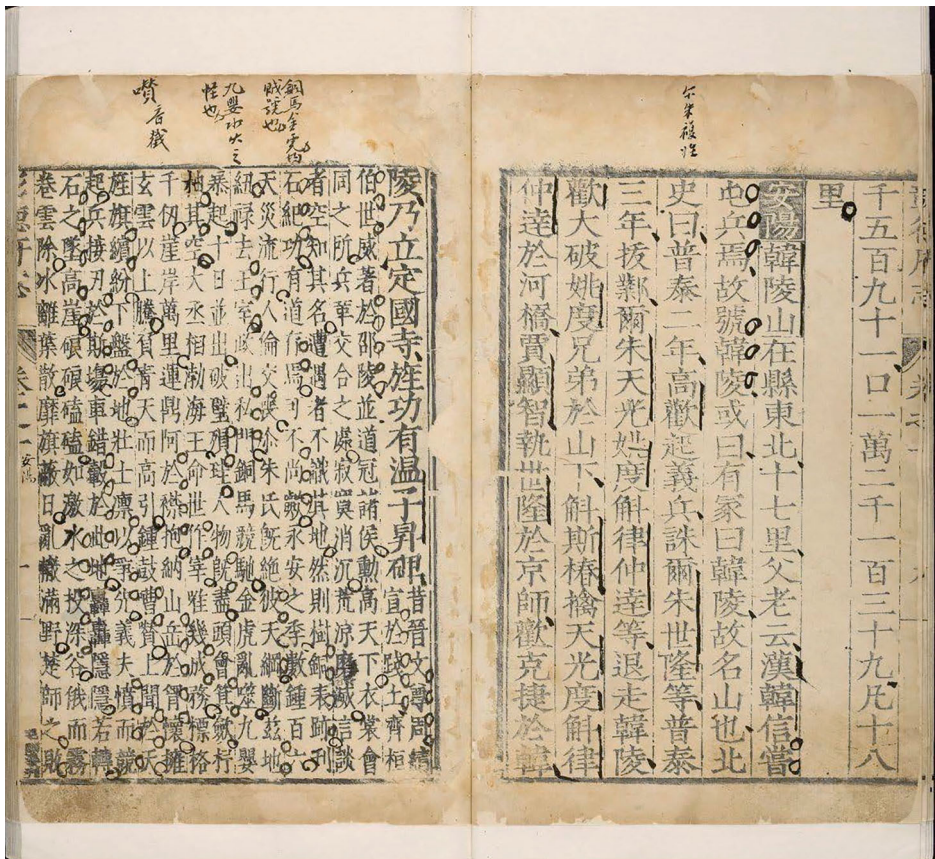 千五百九十一口一萬二千一百三十九凡十八
里
安陽韓陵山在縣東北十七里父老云漢韓信嘗
屯兵焉故號韓陵或曰有冢曰韓陵故名山也北
史曰普泰二年高歡起義兵誅爾朱世隆等普泰
三年援鄴爾朱天光姚度斛律仲達等退走韓陵
歡大破姚度兄弟於山下斛斯椿擒天光度斛律
仲達於河橋賈顯智執世隆於京師歡克捷於韓
陵乃立定國寺旌功有温子昇碑昔晉文尊周績
宣於踐土齊桓
伯世威著於邵陵並道冠諸侯勲高天下衣裳會
同之所兵車交合之處寂寞消沉荒凉磨滅言談
者空知其名遭遇者不識其地然則樹銅表跡刊
石紀功有道存焉可不尚歟永安之季數鍾百六
天災流行人倫交喪尒朱氏既絶彼天綱斷兹地
紐祿去王室政出私門銅馬競馳金虎亂噬九嬰
暴起十日並出破璧殞珪人物既盡頭會箕斂杼
柚其空大丞相勃海王命世作宰唯幾成務標格
千仞崖岸萬里運鼎阿於襟抱納山岳於胷懷擁
玄雲以上騰負青天而高引鍾鼓嘈囋上聞於天
旌旗繽紛下盤於地壯士凛以爭先義夫憤而競
起兵接刃於斯塲車錯轂於此地轟轟隱隱若轉
石之墜高崖硠硠磕磕如激水之投深谷俄而霧
卷雲除冰離葉散靡旗蔽日亂轍滿野楚師之敗
九嬰水火之
怪也
囋音巀